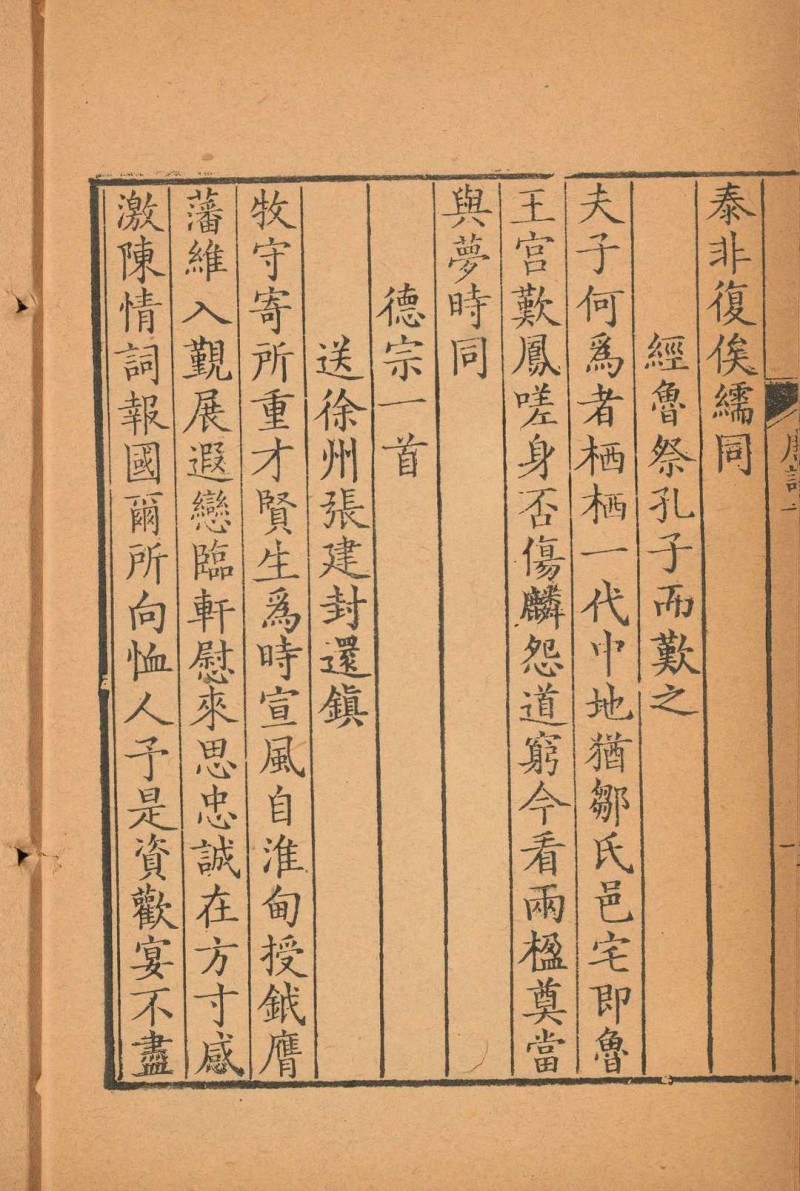 泰非復俟繻同
經魯祭孔子而歎之
夫子何爲者栖栖一代中地猶鄒氏邑宅即魯
王宫歎鳳嗟身否傷麟怨道窮今看兩楹奠當
與夢時同
德宗一首
送徐州張建封還鎮
牧守寄所重才賢生爲時宣風自淮甸授鉞膺
藩維入覲展遐戀臨軒慰來思忠誠在方寸感
激陳情詞報國爾所向恤人予是資歡宴不盡